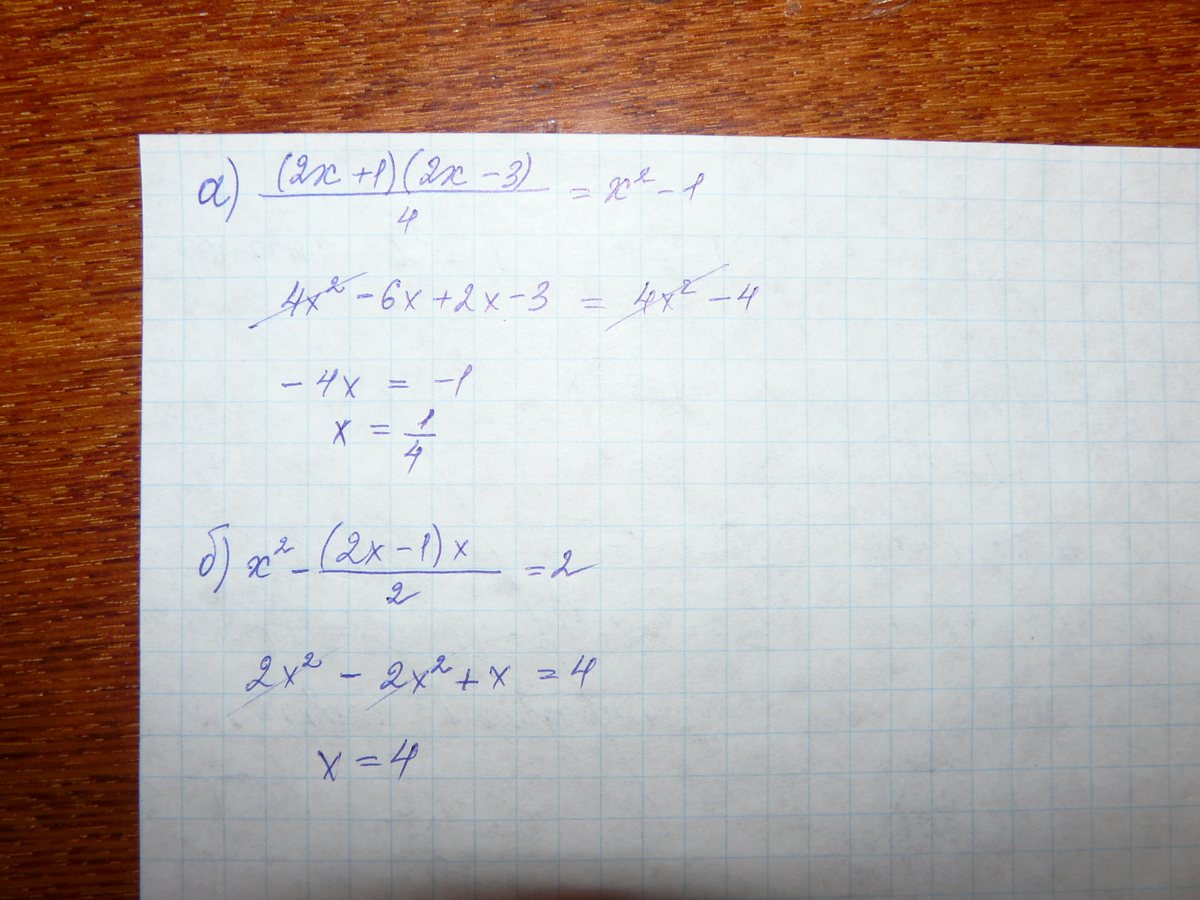 а) (2x+1)(2x-3)/4 = x² - 1
4x² - 6x + 2x - 3 = 4x² - 4
- 4x = -1
x = 1/4
б) x² - (2x-1)x/2 = 2
2x² - 2x² + x = 4
x = 4